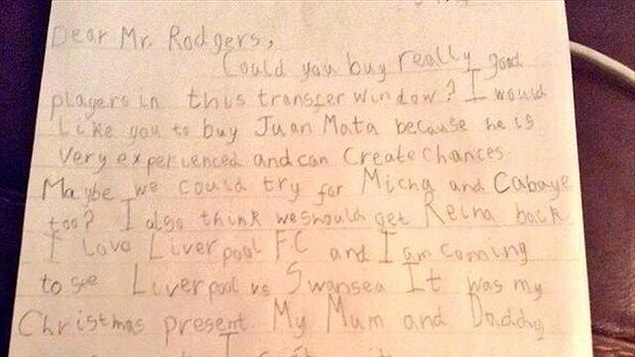 Dear Mr. Rodgers,
Could you buy really good
players in this transfer window? I would
Like you to buy Juan Mata because he is
very experienced and can Create chances.
Maybe we could try for Micha and Cabaye
too? I also think we should get Reina back
I Love Liverpool FC and I am Coming
to see Liverpool vs Swansea It was my
Christmas present. My Mum and Daddy
I